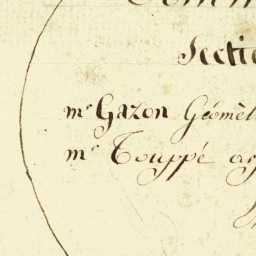 Sectio
mr Gazon Géomèt
mr Touppé arp